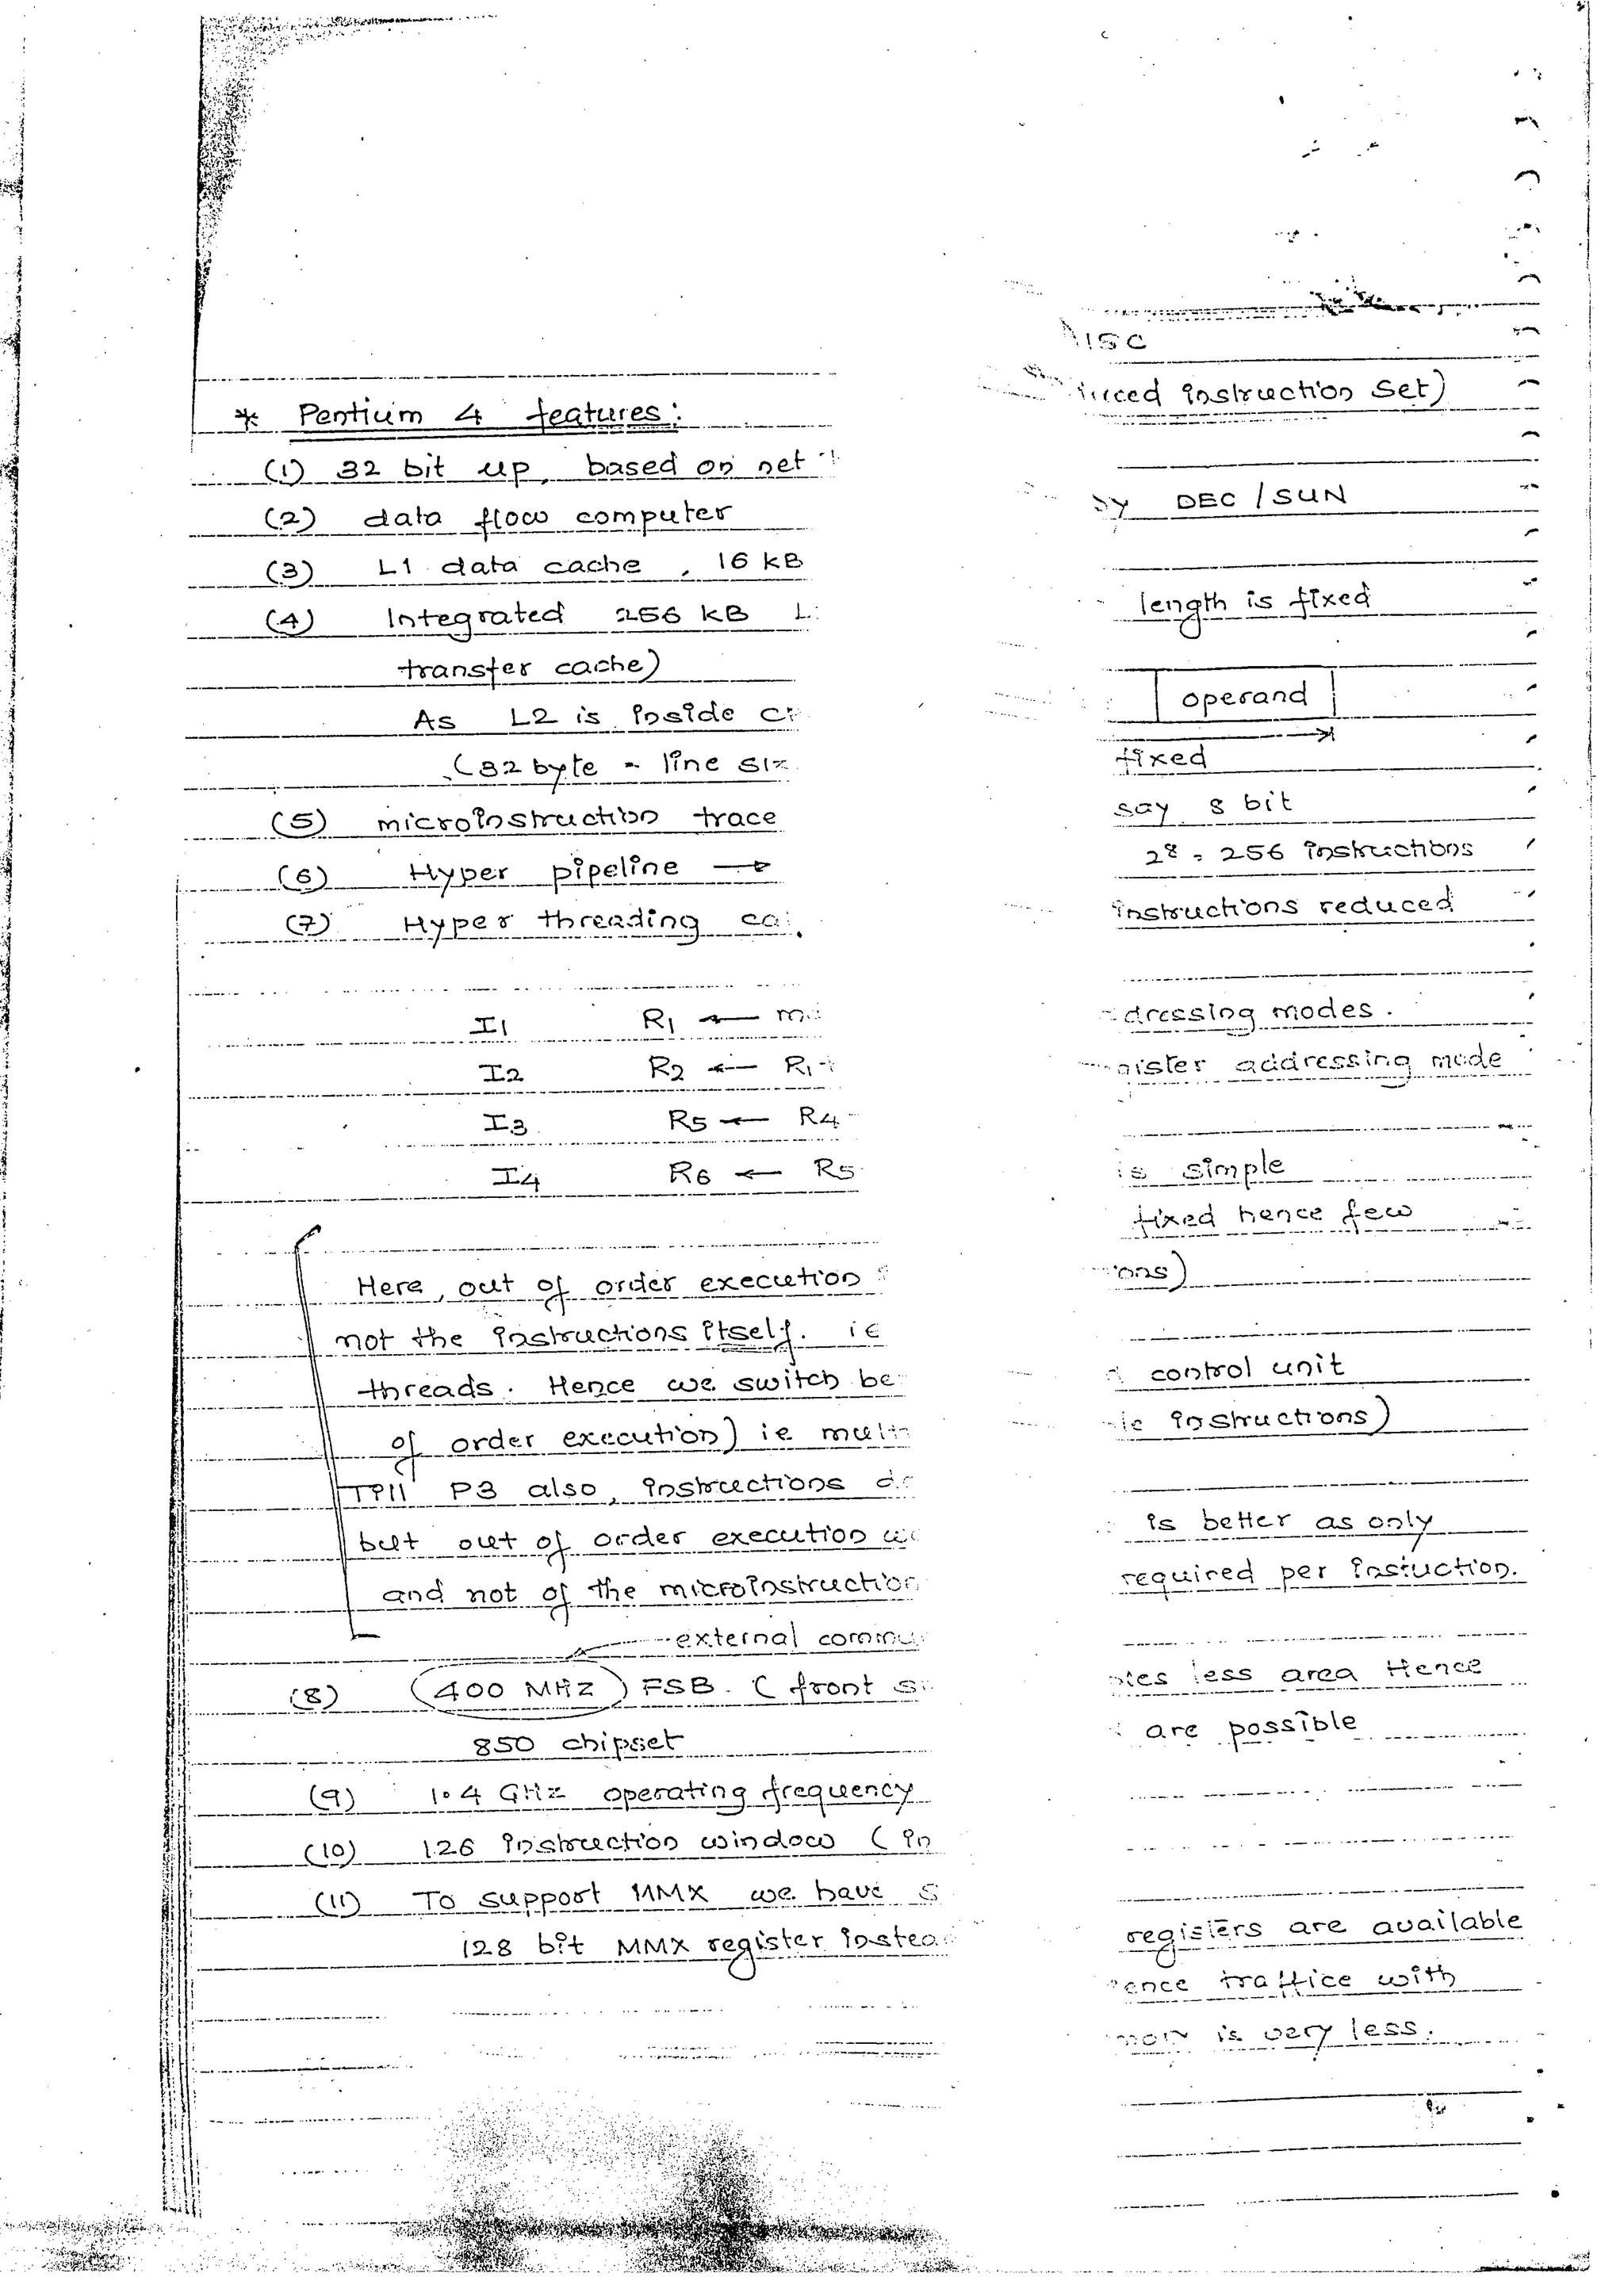 * Pentium 4 features:
(1) 32 bit up, based on net
(2) data flow computer
(3) L1 data cache, 16 KB
(4) Integrated 256 KB
transfer cache)
As L2 is inside
(32 byte - line
(5) microinstruction trace
(6) Hyper pipeline →
(7) Hyper threading
I1 R1 ←
I2 R2 ← R1
I3 R5 ← R4
I4 R6 ← R5
Here, out of order execution
not the instructions itself. ie
threads. Hence we switch
of order execution) ie
Till P3 also, instructions
but out of order execution
and not of the
external
(8) 400 MHz FSB. (front
850 chipset
(9) 1.4 GHz operating frequency
(10) 126 instruction window (in
(11) To support MMX we have
128 bit MMX register
instruction set)
DEC / SUN
length is fixed
operand
fixed
say 8 bit
2^8 = 256 instructions
instructions reduced
modes.
addressing mode
is simple
fixed hence few
control unit
instructions)
is better as only
required per instuction.
less area Hence
are possible
registers are available
traffice with
is very less.